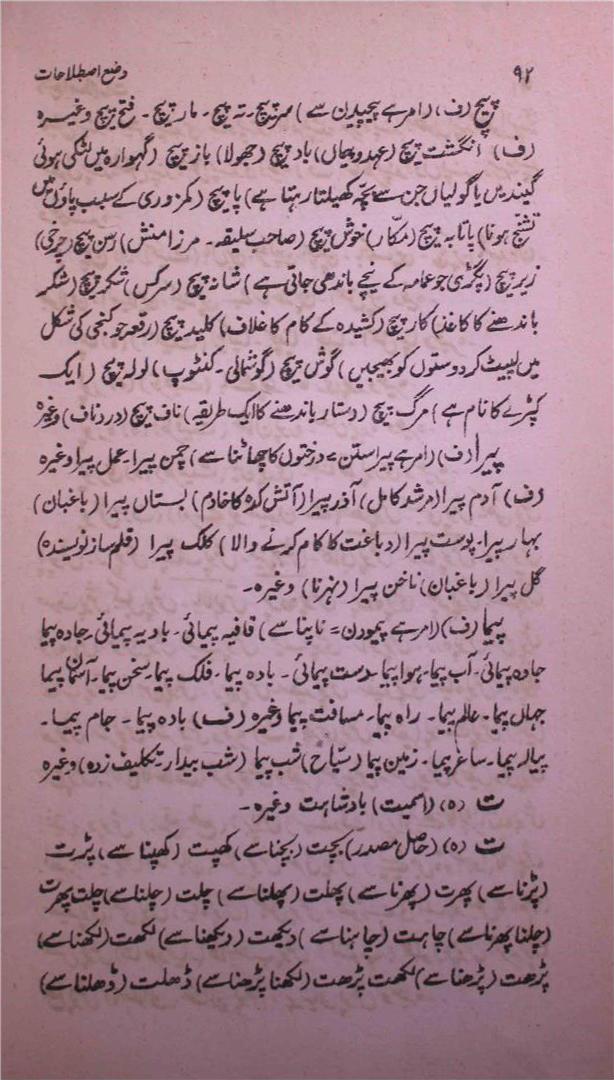 ۹۲
وضع اصطلاحات
پیچ (ف) (امر ہے پیچیدن سے) سرپیچ۔ تہ پیچ۔ مار پیچ۔ فتح پیچ وغیرہ
(ف) انگشت پیچ (عہد و پیماں) باد پیچ (جھولا) باز پیچ (گہوارہ میں لٹکی ہوئی
گیندیں یا گولیاں جن سے بچّہ کھیلتا رہتا ہے) پا پیچ (کمزوری کے سبب پاؤں میں
تشنج ہونا) پاتابہ پیچ (مکّار) خوش پیچ (صاحب سلیقہ۔ مرزا منش) رسن پیچ (چرخی)
زیر پیچ (پگڑی جو عمامہ کے نیچے باندھی جاتی ہے) شانہ پیچ (سرکس) شکر پیچ (شکر
باندھنے کا کاغذ) کار پیچ (کشیدہ کے کام کا غلاف) کلید پیچ (رقعہ جو کنجی کی شکل
میں لپیٹ کر دوستوں کو بھیجیں) گوش پیچ (گوشمالی۔ کنٹوپ) لولہ پیچ (ایک
کپڑے کا نام ہے) مرگ پیچ (دستار باندھنے کا ایک طریقہ) ناف پیچ (درد ناف) وغیرہ
پیرا (ف) (امر ہے پیراستن = درختوں کا چھانٹنا سے) چمن پیرا۔ عمل پیرا وغیرہ
(ف) آدم پیرا (مرشد کامل) آذر پیرا (آتش کدہ کا خادم) بستاں پیرا (باغبان)
بہار پیرا۔ پوست پیرا (دباغت کا کام کرنے والا) کلک پیرا (قلم ساز نویسندہ)
گل پیرا (باغبان) ناخن پیرا (نہرنا) وغیرہ۔
پیما (ف) (امر ہے پیمودن = ناپنا سے) قافیہ پیمائی۔ بادیہ پیمائی۔ جادہ پیما
جادہ پیمائی۔ آب پیما۔ ہوا پیما۔ دست پیمائی۔ بادہ پیما۔ فلک پیما۔ سخن پیما۔ آسمان پیما
جہاں پیما۔ عالم پیما۔ راہ پیما۔ مسافت پیما وغیرہ (ف) بادہ پیما۔ جام پیما۔
پیالہ پیما۔ ساغر پیما۔ زمین پیما (سیّاح) شب پیما (شب بیدار۔ تکلیف زدہ) وغیرہ
ت (ہ) (اسمیت) بادشاہت وغیرہ۔
ت (ہ) (حاصل مصدر) بچت (بچنا سے) کھپت (کھپنا سے) پڑت
(پڑنا سے) پھرت (پھرنا سے) پھلت (پھلنا سے) چلت (چلنا سے) چلت پھرت
(چلنا پھرنا سے) چاہت (چاہنا سے) دیکھت (دیکھنا سے) لکھت (لکھنا سے)
پڑھت (پڑھنا سے) لکھت پڑھت (لکھنا پڑھنا سے) ڈھلت (ڈھلنا سے)